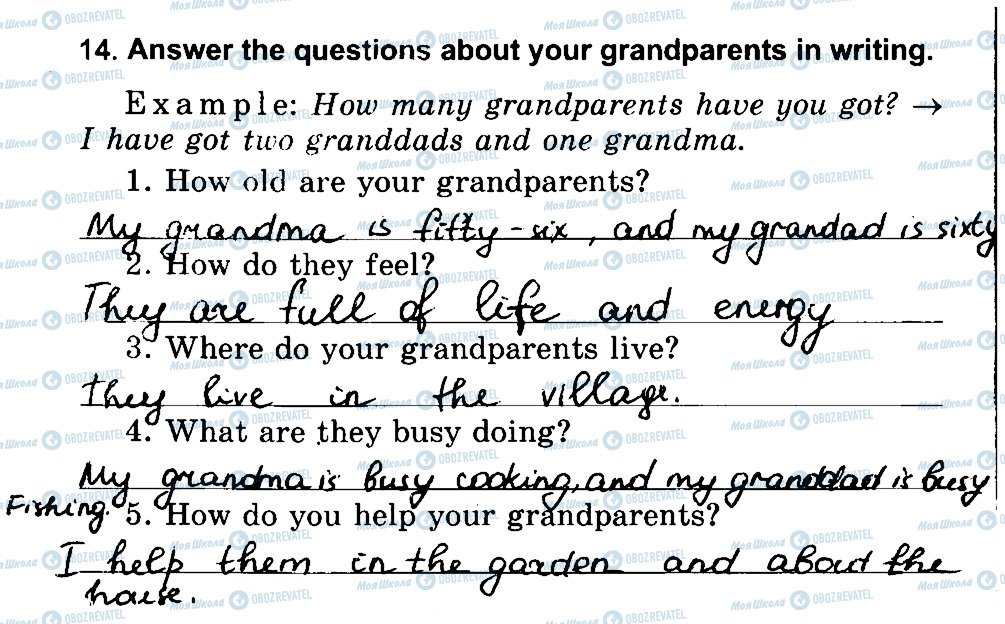 14. Answer the questions about your grandparents in writing.
Example: How many grandparents have you got? →
I have got two granddads and one grandma.
1. How old are your grandparents?
My grandma is fifty-six, and my grandad is sixty
2. How do they feel?
They are full of life and energy
3. Where do your grandparents live?
They live in the village.
4. What are they busy doing?
My grandma is busy cooking, and my granddad is busy
Fishing.
5. How do you help your grandparents?
I help them in the garden and about the
house.